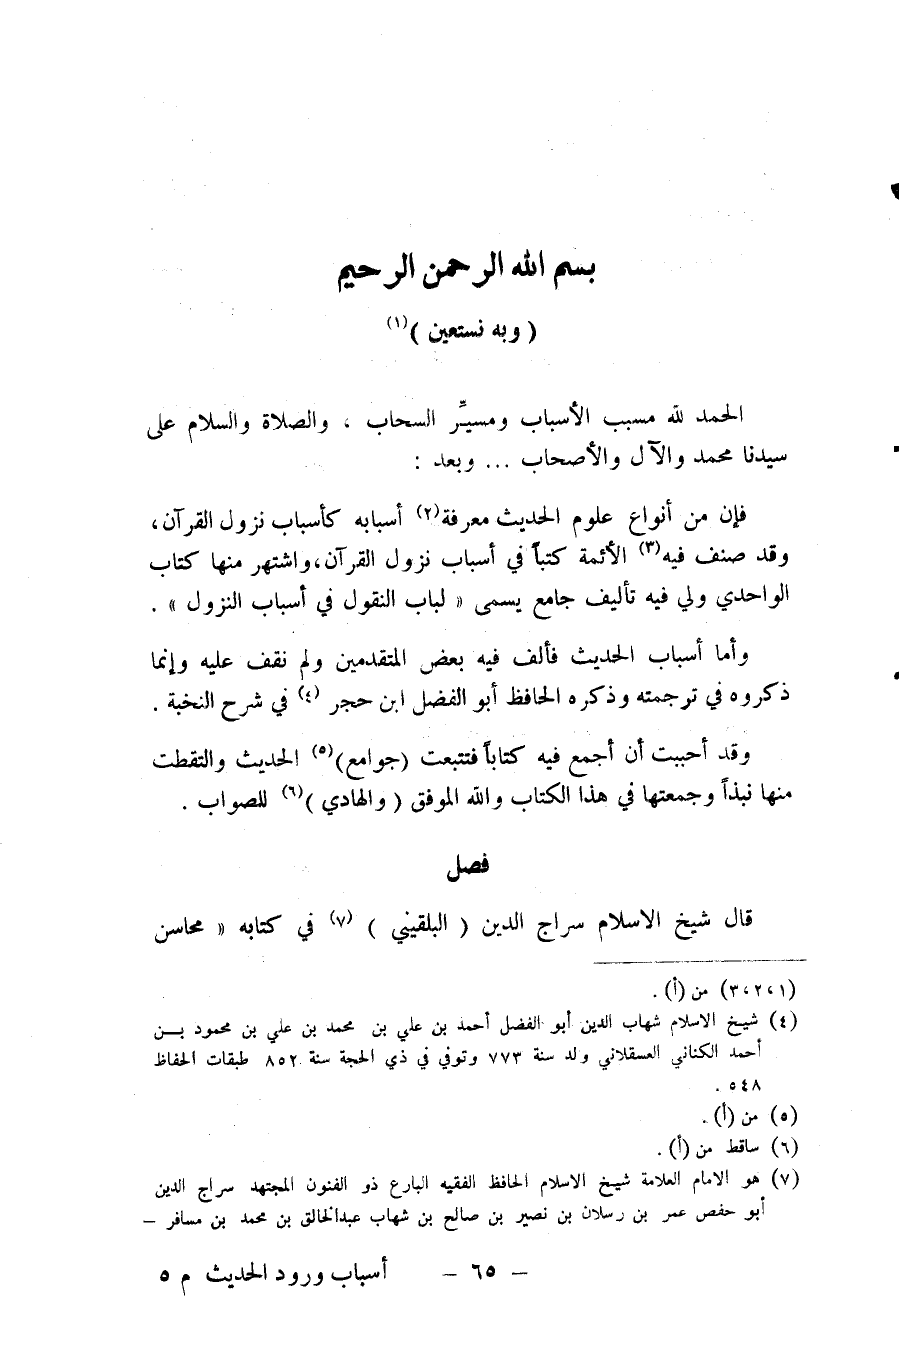 بسم الله الرحمن الرحيم
( وبه نستعين )(١)
الحمد لله مسبب الأسباب ومسيِّر السحاب ، والصلاة والسلام على
سيدنا محمد والآل والأصحاب ... وبعد :
فإن من أنواع علوم الحديث معرفة(٢) أسبابه كأسباب نزول القرآن،
وقد صنف فيه(٣) الأئمة كتباً في أسباب نزول القرآن،واشتهر منها كتاب
الواحدي ولي فيه تأليف جامع يسمى « لباب النقول في أسباب النزول » .
وأما أسباب الحديث فألف فيه بعض المتقدمين ولم نقف عليه وإنما
ذكروه في ترجمته وذكره الحافظ أبو الفضل ابن حجر (٤) في شرح النخبة .
وقد أحببت أن أجمع فيه كتاباً فتتبعت (جوامع)(٥) الحديث والتقطت
منها نبذاً وجمعتها في هذا الكتاب والله الموفق ( والهادي )(٦) للصواب .
فصل
قال شيخ الاسلام سراج الدين ( البلقيني ) (٧) في كتابه « محاسن
(١،٢،٣) من (أ) .
(٤) شيخ الاسلام شهاب الدين أبو الفضل أحمد بن علي بن محمد بن علي بن محمود بـن
أحمد الكناني العسقلاني ولد سنة ٧٧٣ وتوفي في ذي الحجة سنة ٨٥٢ طبقات الحفاظ
٥٤٨ .
(٥) من (أ) .
(٦) ساقط من (أ) .
(٧) هو الامام العلامة شيخ الاسلام الحافظ الفقيه البارع ذو الفنون المجتهد سراج الدين
أبو حفص عمر بن رسلان بن نصير بن صالح بن شهاب عبدالخالق بن محمد بن مسافر –
– ٦٥ – أسباب ورود الحديث م ٥